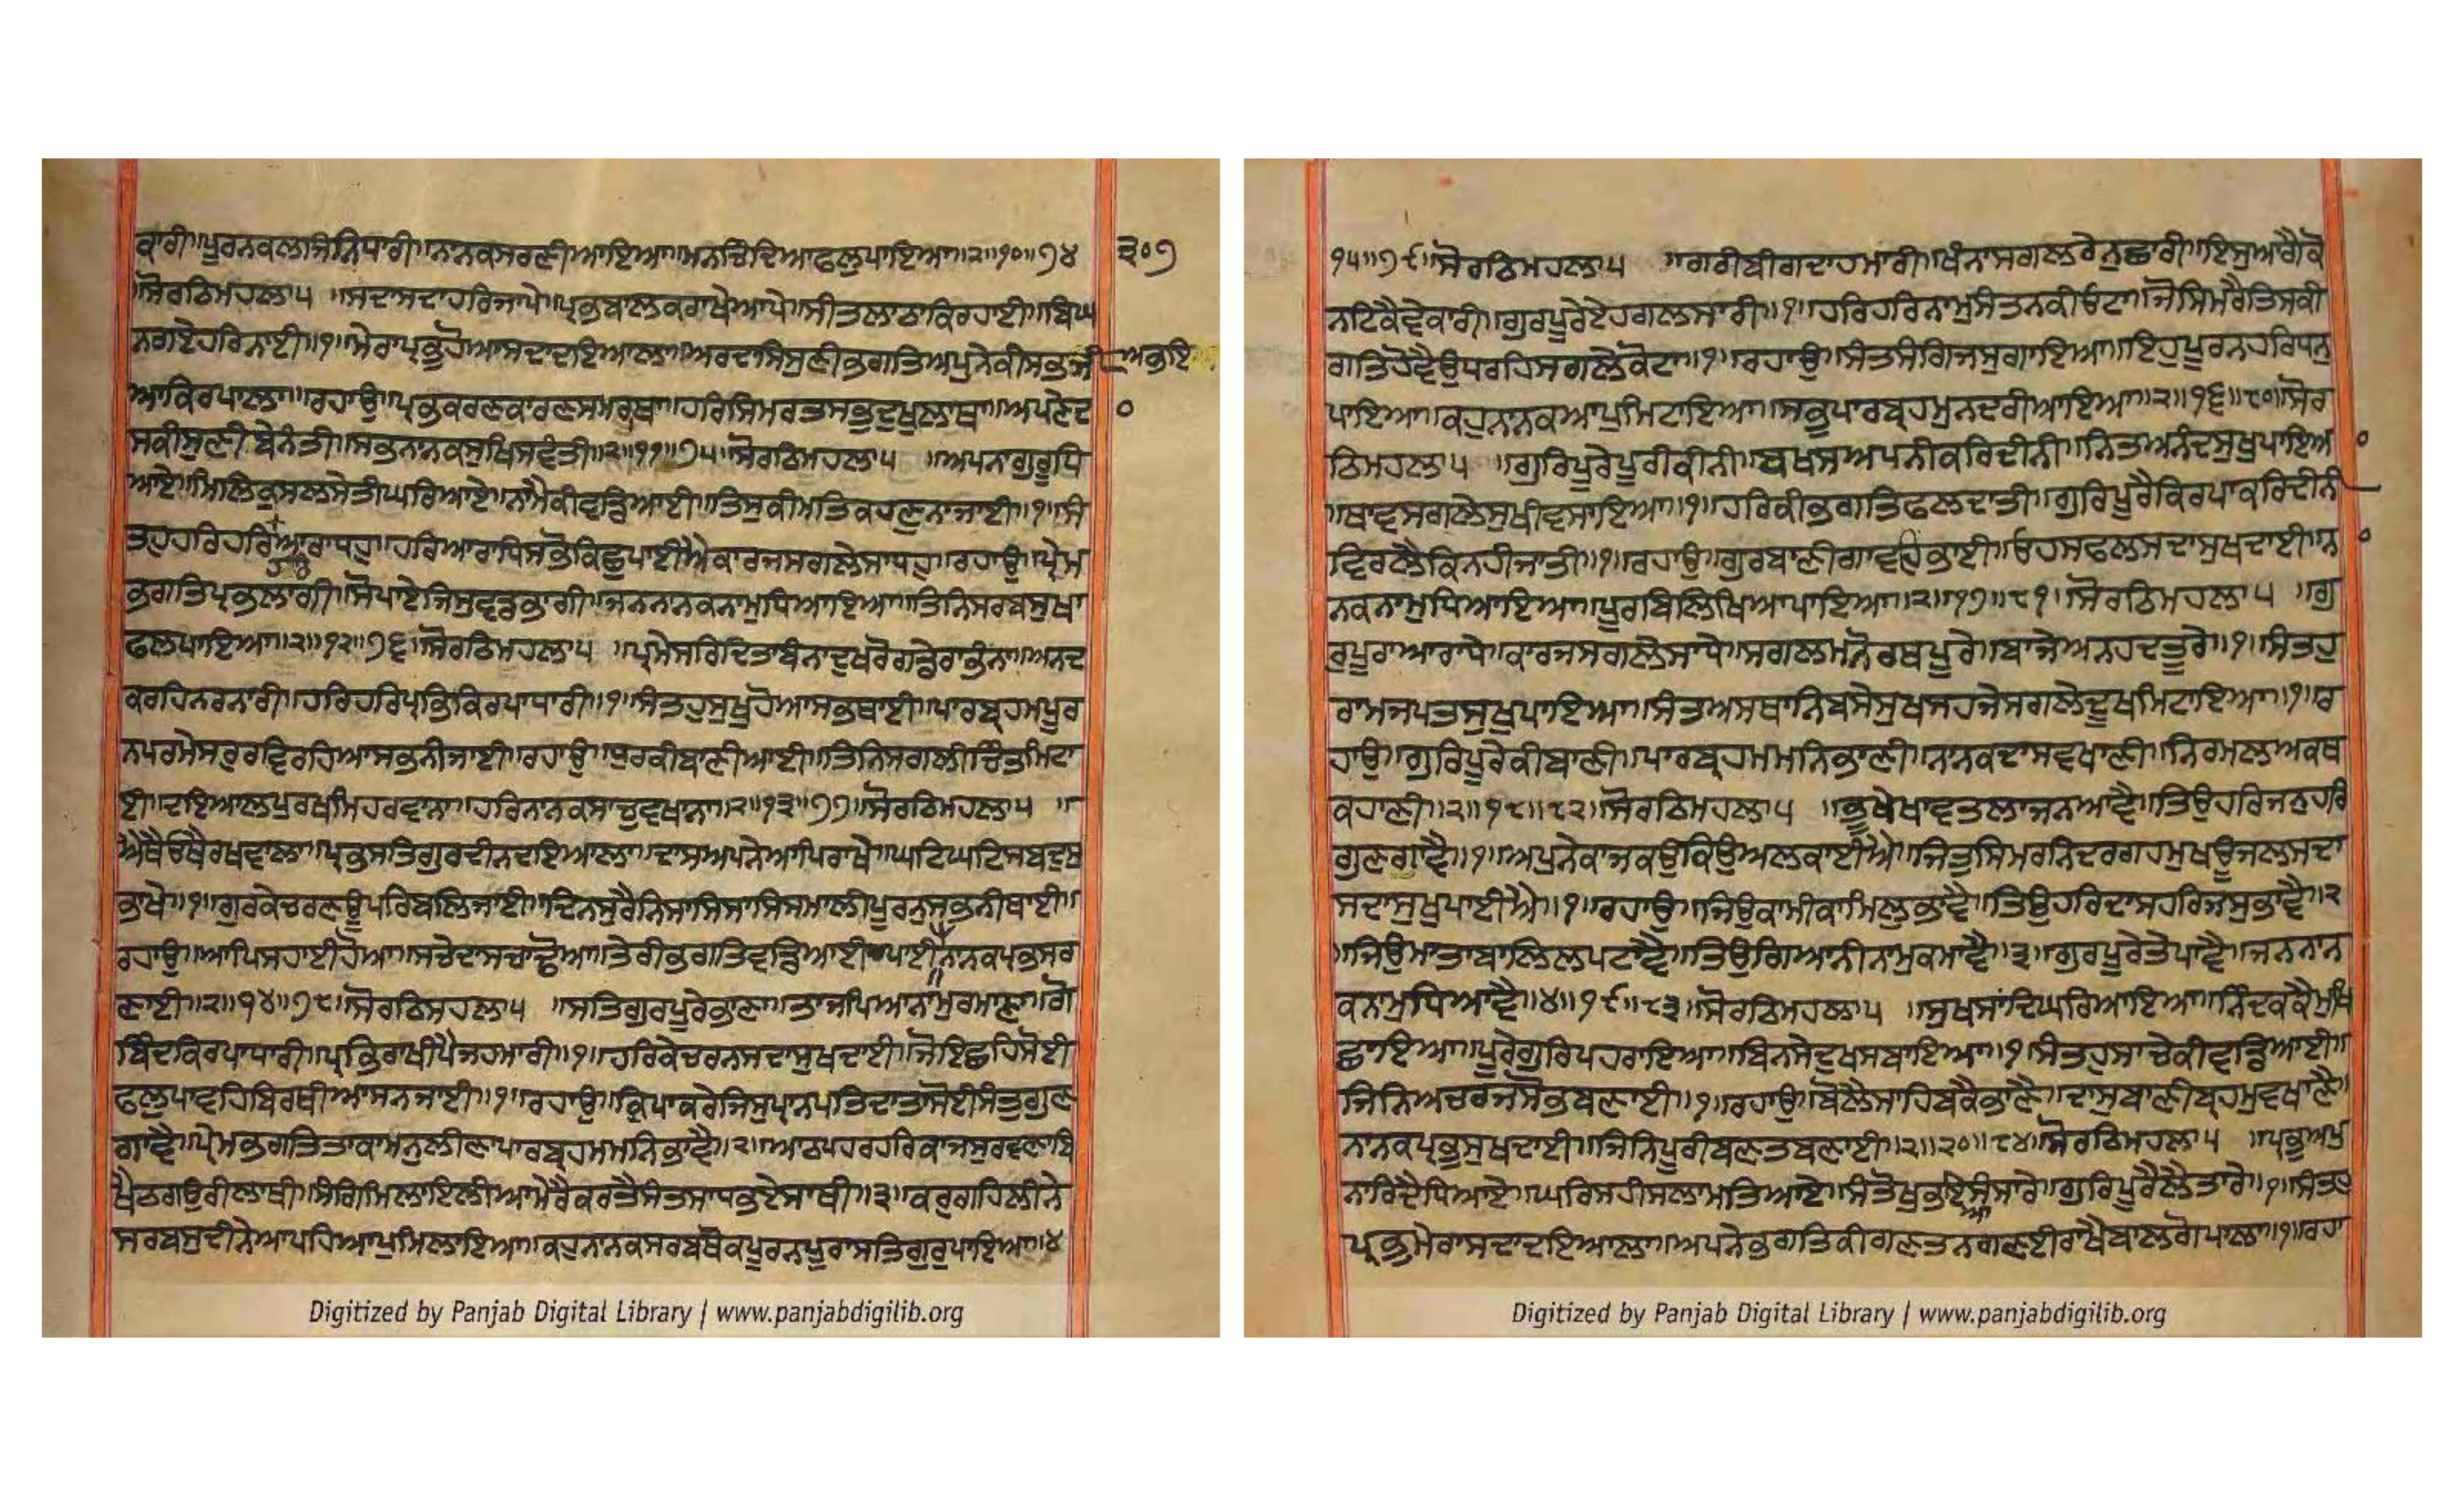 ਕਾਰੀ॥ਪੂਰਨਕਲਾਜਿਨਿਧਾਰੀ॥ਨਾਨਕਸਰਣੀਆਇਆ॥ਮਨਚਿੰਦਿਆਫਲੁਪਾਇਆ॥੨॥੧੦॥੭੪ ੩੦੭
॥ਸੋਰਠਿਮਹਲਾ੫ ॥ਸਦਾਸਦਾਹਰਿਜਾਪੇ॥ਪ੍ਰਭਬਾਲਕਰਾਖੇਆਪੇ॥ਸੀਤਲਾਠਾਕਿਰਹਾਈ॥ਬਿਘ
ਨਗਏਹਰਿਨਾਈ॥੧॥ਮੇਰਾਪ੍ਰਭੁਹੋਆਸਦਾਦਇਆਲਾ॥ਅਰਦਾਸਿਸੁਣੀਭਗਤਿਅਪੁਨੇਕੀਸਭਜੀ ਅਭਇ
ਆਕਿਰਪਾਲਾ॥ਰਹਾਉ॥ਪ੍ਰਭਕਰਣਕਾਰਣਸਮਰਾਥਾ॥ਹਰਿਸਿਮਰਤਸਭੁਦੁਖੁਲਾਥਾ॥ਅਪਣੇਦ ੦
ਸਕੀਸੁਣੀਬੇਨੰਤੀ॥ਸਭਨਾਨਕਸੁਖਿਸਵੰਤੀ॥੨॥੧੧॥੭੫॥ਸੋਰਠਿਮਹਲਾ੫ ॥ਅਪਨਾਗੁਰੂਧਿ
ਆਏ॥ਮਿਲਿਕੁਸਲਸੇਤੀਘਰਿਆਏ॥ਨਾਮੈਕੀਵਡਿਆਈ॥ਤਿਸੁਕੀਮਤਿਕਹਣੁਨਾਜਾਈ॥੧॥ਸੰ
ਤਹੁਹਰਿਹਰਿਆਰਾਧਹੁ॥ਹਰਿਆਰਾਧਿਸਭੋਕਿਛੁਪਾਈਐਕਾਰਜਸਗਲੇਸਾਧਹੁ॥ਰਹਾਉ॥ਪ੍ਰੇਮ
ਭਗਤਿਪ੍ਰਭਲਾਗੀ॥ਸੋਪਾਏਜਿਸੁਵਡਭਾਗੀ॥ਜਨਨਾਨਕਨਾਮੁਧਿਆਇਆ॥ਤਿਨਿਸਰਬਸੁਖਾ
ਫਲਪਾਇਆ॥੨॥੧੨॥੭੬॥ਸੋਰਠਿਮਹਲਾ੫ ॥ਪ੍ਰਮੇਸਰਿਦਿਤਾਬੰਨਾਦੁਖਰੋਗਡੇਰਾਭੰਨਾ॥ਅਨਦ
ਕਰਹਿਨਰਨਾਰੀ॥ਹਰਿਹਰਿਪ੍ਰਭਿਕਿਰਪਾਧਾਰੀ॥੧॥ਸੰਤਹੁਸੁਖੁਹੋਆਸਭਥਾਈ॥ਪਾਰਬ੍ਰਹਮਪੂਰ
ਨਪਰਮੇਸਰੁਰਵਿਰਹਿਆਸਭਨੀਜਾਈ॥ਰਹਾਉ॥ਧੁਰਕੀਬਾਣੀਆਈ॥ਤਿਨਿਸਗਲੀਚਿੰਤਮਿਟਾ
ਈ॥ਦਇਆਲਪੁਰਖਮਿਹਰਵਾਨਾ॥ਹਰਿਨਾਨਕਸਾਚੁਵਖਾਨਾ॥੨॥੧੩॥੭੭॥ਸੋਰਠਿਮਹਲਾ੫ ॥
ਐਥੈਓਥੈਰਖਵਾਲਾ॥ਪ੍ਰਭਸਤਿਗੁਰਦੀਨਦਇਆਲਾ॥ਦਾਸਅਪਨੇਆਪਿਰਾਖੇ॥ਘਟਿਘਟਿਸਬਦੁਸੁ
ਭਾਖੇ॥੧॥ਗੁਰਕੇਚਰਣਊਪਰਿਬਲਿਜਾਈ॥ਦਿਨਸੁਰੈਨਿਸਾਸਿਸਾਸਿਸਮਾਲੀਪੂਰਨੁਸਭਨੀਥਾਈ॥
ਰਹਾਉ॥ਆਪਿਸਹਾਈਹੋਆ॥ਸਚੇਦਾਸਚਾਢੋਆ॥ਤੇਰੀਭਗਤਿਵਡਿਆਈਪਾਈਨਾਨਕਪ੍ਰਭਸਰ
ਣਾਈ॥੨॥੧੪॥੭੮॥ਸੋਰਠਿਮਹਲਾ੫ ॥ਸਤਿਗੁਰਪੂਰੇਭਾਣਾ॥ਤਾਜਪਿਆਨਾਮੁਰਮਾਣਾ॥ਗੋ
ਬਿੰਦਕਿਰਪਾਧਾਰੀ॥ਪ੍ਰਭਿਰਾਖੀਪੈਜਹਮਾਰੀ॥੧॥ਹਰਿਕੇਚਰਨਸਦਾਸੁਖਦਾਈ॥ਜੋਇਛਹਿਸੋਈ
ਫਲੁਪਾਵਹਿਬਿਰਥੀਆਸਨਜਾਈ॥੧॥ਰਹਾਉ॥ਕ੍ਰਿਪਾਕਰੇਜਿਸੁਪ੍ਰਾਨਪਤਿਦਾਤਾਸੋਈਸੰਤੁਗੁਣ
ਗਾਵੈ॥ਪ੍ਰੇਮਭਗਤਿਤਾਕਾਮਨੁਲੀਣਾਪਾਰਬ੍ਰਹਮਮਨਿਭਾਵੈ॥੨॥ਆਠਪਹਰਹਰਿਕਾਜਸੁਰਵਣਾਬਿ
ਖੈਠਗਉਰੀਲਾਥੀ॥ਸੰਗਿਮਿਲਾਇਲੀਆਮੇਰੈਕਰਤੈਸੰਤਸਾਧਭਏਸਾਥੀ॥੩॥ਕਰੁਗਹਿਲੀਨੇ
ਸਰਬਸੁਦੀਨੇਆਪਹਿਆਪੁਮਿਲਾਇਆ॥ਕਹੁਨਾਨਕਸਰਬਥੋਕਪੂਰਨਪੂਰਾਸਤਿਗੁਰੁਪਾਇਆ॥੪
Digitized by Panjab Digital Library | www.panjabdigilib.org
੧੫॥੭੯॥ਸੋਰਠਿਮਹਲਾ੫ ॥ਗਰੀਬੀਗਦਾਹਮਾਰੀ॥ਖੰਨਾਸਗਲਰੇਨੁਛਾਰੀ॥ਇਸੁਆਗੈਕੋ
ਨਟਿਕੈਵੇਕਾਰੀ॥ਗੁਰਪੂਰੇਏਹਗਲਸਾਰੀ॥੧॥ਹਰਿਹਰਿਨਾਮੁਸੰਤਨਕੀਓਟਾ॥ਜੋਸਿਮਰੈਤਿਸਕੀ
ਗਤਿਹੋਵੈਉਧਰਹਿਸਗਲੇਕੋਟਾ॥੧॥ਰਹਾਉ॥ਸੰਤਸੰਗਿਜਸੁਗਾਇਆ॥ਇਹੁਪੂਰਨਹਰਿਧਨੁ
ਪਾਇਆ॥ਕਹੁਨਾਨਕਆਪੁਮਿਟਾਇਆ॥ਸਭੁਪਾਰਬ੍ਰਹਮੁਨਦਰੀਆਇਆ॥੨॥੧੬॥੮੦॥ਸੋਰ
ਠਿਮਹਲਾ੫ ॥ਗੁਰਿਪੂਰੈਪੂਰੀਕੀਨੀ॥ਬਖਸਅਪਨੀਕਰਿਦੀਨੀ॥ਨਿਤਅਨੰਦਸੁਖੁਪਾਇਆ ੦
॥ਥਾਵਸਗਲੇਸੁਖੀਵਸਾਇਆ॥੧॥ਹਰਿਕੀਭਗਤਿਫਲਦਾਤੀ॥ਗੁਰਿਪੂਰੈਕਿਰਪਾਕਰਿਦੀਨੀ
ਵਿਰਲੈਕਿਨਹੀਜਾਤੀ॥੧॥ਰਹਾਉ॥ਗੁਰਬਾਣੀਗਾਵਹਭਾਈ॥ਓਹਸਫਲਸਦਾਸੁਖਦਾਈ॥ਨਾ ੦
ਨਕਨਾਮੁਧਿਆਇਆ॥ਪੂਰਬਿਲਿਖਿਆਪਾਇਆ॥੨॥੧੭॥੮੧॥ਸੋਰਠਿਮਹਲਾ੫ ॥ਗੁ
ਰੁਪੂਰਾਆਰਾਧੇ॥ਕਾਰਜਸਗਲੇਸਾਧੇ॥ਸਗਲਮਨੋਰਥਪੂਰੇ॥ਬਾਜੇਅਨਹਦਤੂਰੇ॥੧॥ਸੰਤਹੁ
ਰਾਮਜਪਤਸੁਖੁਪਾਇਆ॥ਸੰਤਅਸਥਾਨਿਬਸੇਸੁਖਸਹਜੇਸਗਲੇਦੂਖਮਿਟਾਇਆ॥੧॥ਰ
ਹਾਉ॥ਗੁਰਿਪੂਰੇਕੀਬਾਣੀ॥ਪਾਰਬ੍ਰਹਮਮਨਿਭਾਣੀ॥ਨਾਨਕਦਾਸਵਖਾਣੀ॥ਨਿਰਮਲਅਕਥ
ਕਹਾਣੀ॥੨॥੧੮॥੮੨॥ਸੋਰਠਿਮਹਲਾ੫ ॥ਭੂਖੇਖਾਵਤਲਾਜਨਆਵੈ॥ਤਿਉਹਰਿਜਨੁਹਰਿ
ਗੁਣਗਾਵੈ॥੧॥ਅਪੁਨੇਕਾਜਕਉਕਿਉਅਲਕਾਈਐ॥ਜਿਤੁਸਿਮਰਨਿਦਰਗਹਮੁਖੁਊਜਲਸਦਾ
ਸਦਾਸੁਖੁਪਾਈਐ॥੧॥ਰਹਾਉ॥ਜਿਉਕਾਮੀਕਾਮਿਲੁਭਾਵੈ॥ਤਿਉਹਰਿਦਾਸਹਰਿਜਸੁਭਾਵੈ॥੨
॥ਜਿਉਮਾਤਾਬਾਲਿਲਪਟਾਵੈ॥ਤਿਉਗਿਆਨੀਨਾਮੁਕਮਾਵੈ॥੩॥ਗੁਰਪੂਰੇਤੇਪਾਵੈ॥ਜਨਨਾਨ
ਕਨਾਮੁਧਿਆਵੈ॥੪॥੧੯॥੮੩॥ਸੋਰਠਿਮਹਲਾ੫ ॥ਸੁਖਸਾਂਦਿਘਰਿਆਇਆ॥ਨਿੰਦਕਕੈਮੁਖਿ
ਛਾਇਆ॥ਪੂਰੈਗੁਰਿਪਹਰਾਇਆ॥ਬਿਨਸੇਦੁਖਸਬਾਇਆ॥੧॥ਸੰਤਹੁਸਾਚੇਕੀਵਡਿਆਈ॥
ਜਿਨਿਅਚਰਜਸੋਭਬਣਾਈ॥੧॥ਰਹਾਉ॥ਬੋਲੈਸਾਹਿਬਕੈਭਾਣੈ॥ਦਾਸੁਬਾਣੀਬ੍ਰਹਮੁਵਖਾਣੈ॥
ਨਾਨਕਪ੍ਰਭੁਸੁਖਦਾਈ॥ਜਿਨਿਪੂਰੀਬਣਤਬਣਾਈ॥੨॥੨੦॥੮੪॥ਸੋਰਠਿਮਹਲਾ੫ ॥ਪ੍ਰਭੁਅਪੁ
ਨਾਰਿਦੈਧਿਆਏ॥ਘਰਿਸਹੀਸਲਾਮਤਿਆਏ॥ਸੰਤੋਖੁਭਇਸੰਸਾਰੇ॥ਗੁਰਿਪੂਰੈਲੈਤਾਰੇ॥੧॥ਸੰਤਹੁ
ਪ੍ਰਭੁਮੇਰਾਸਦਾਦਇਆਲਾ॥ਅਪਨੇਭਗਤਿਕੀਗਣਤਨਗਣਈਰਾਖੈਬਾਲਗੋਪਾਲਾ॥੧॥ਰਹਾ
Digitized by Panjab Digital Library | www.panjabdigilib.org